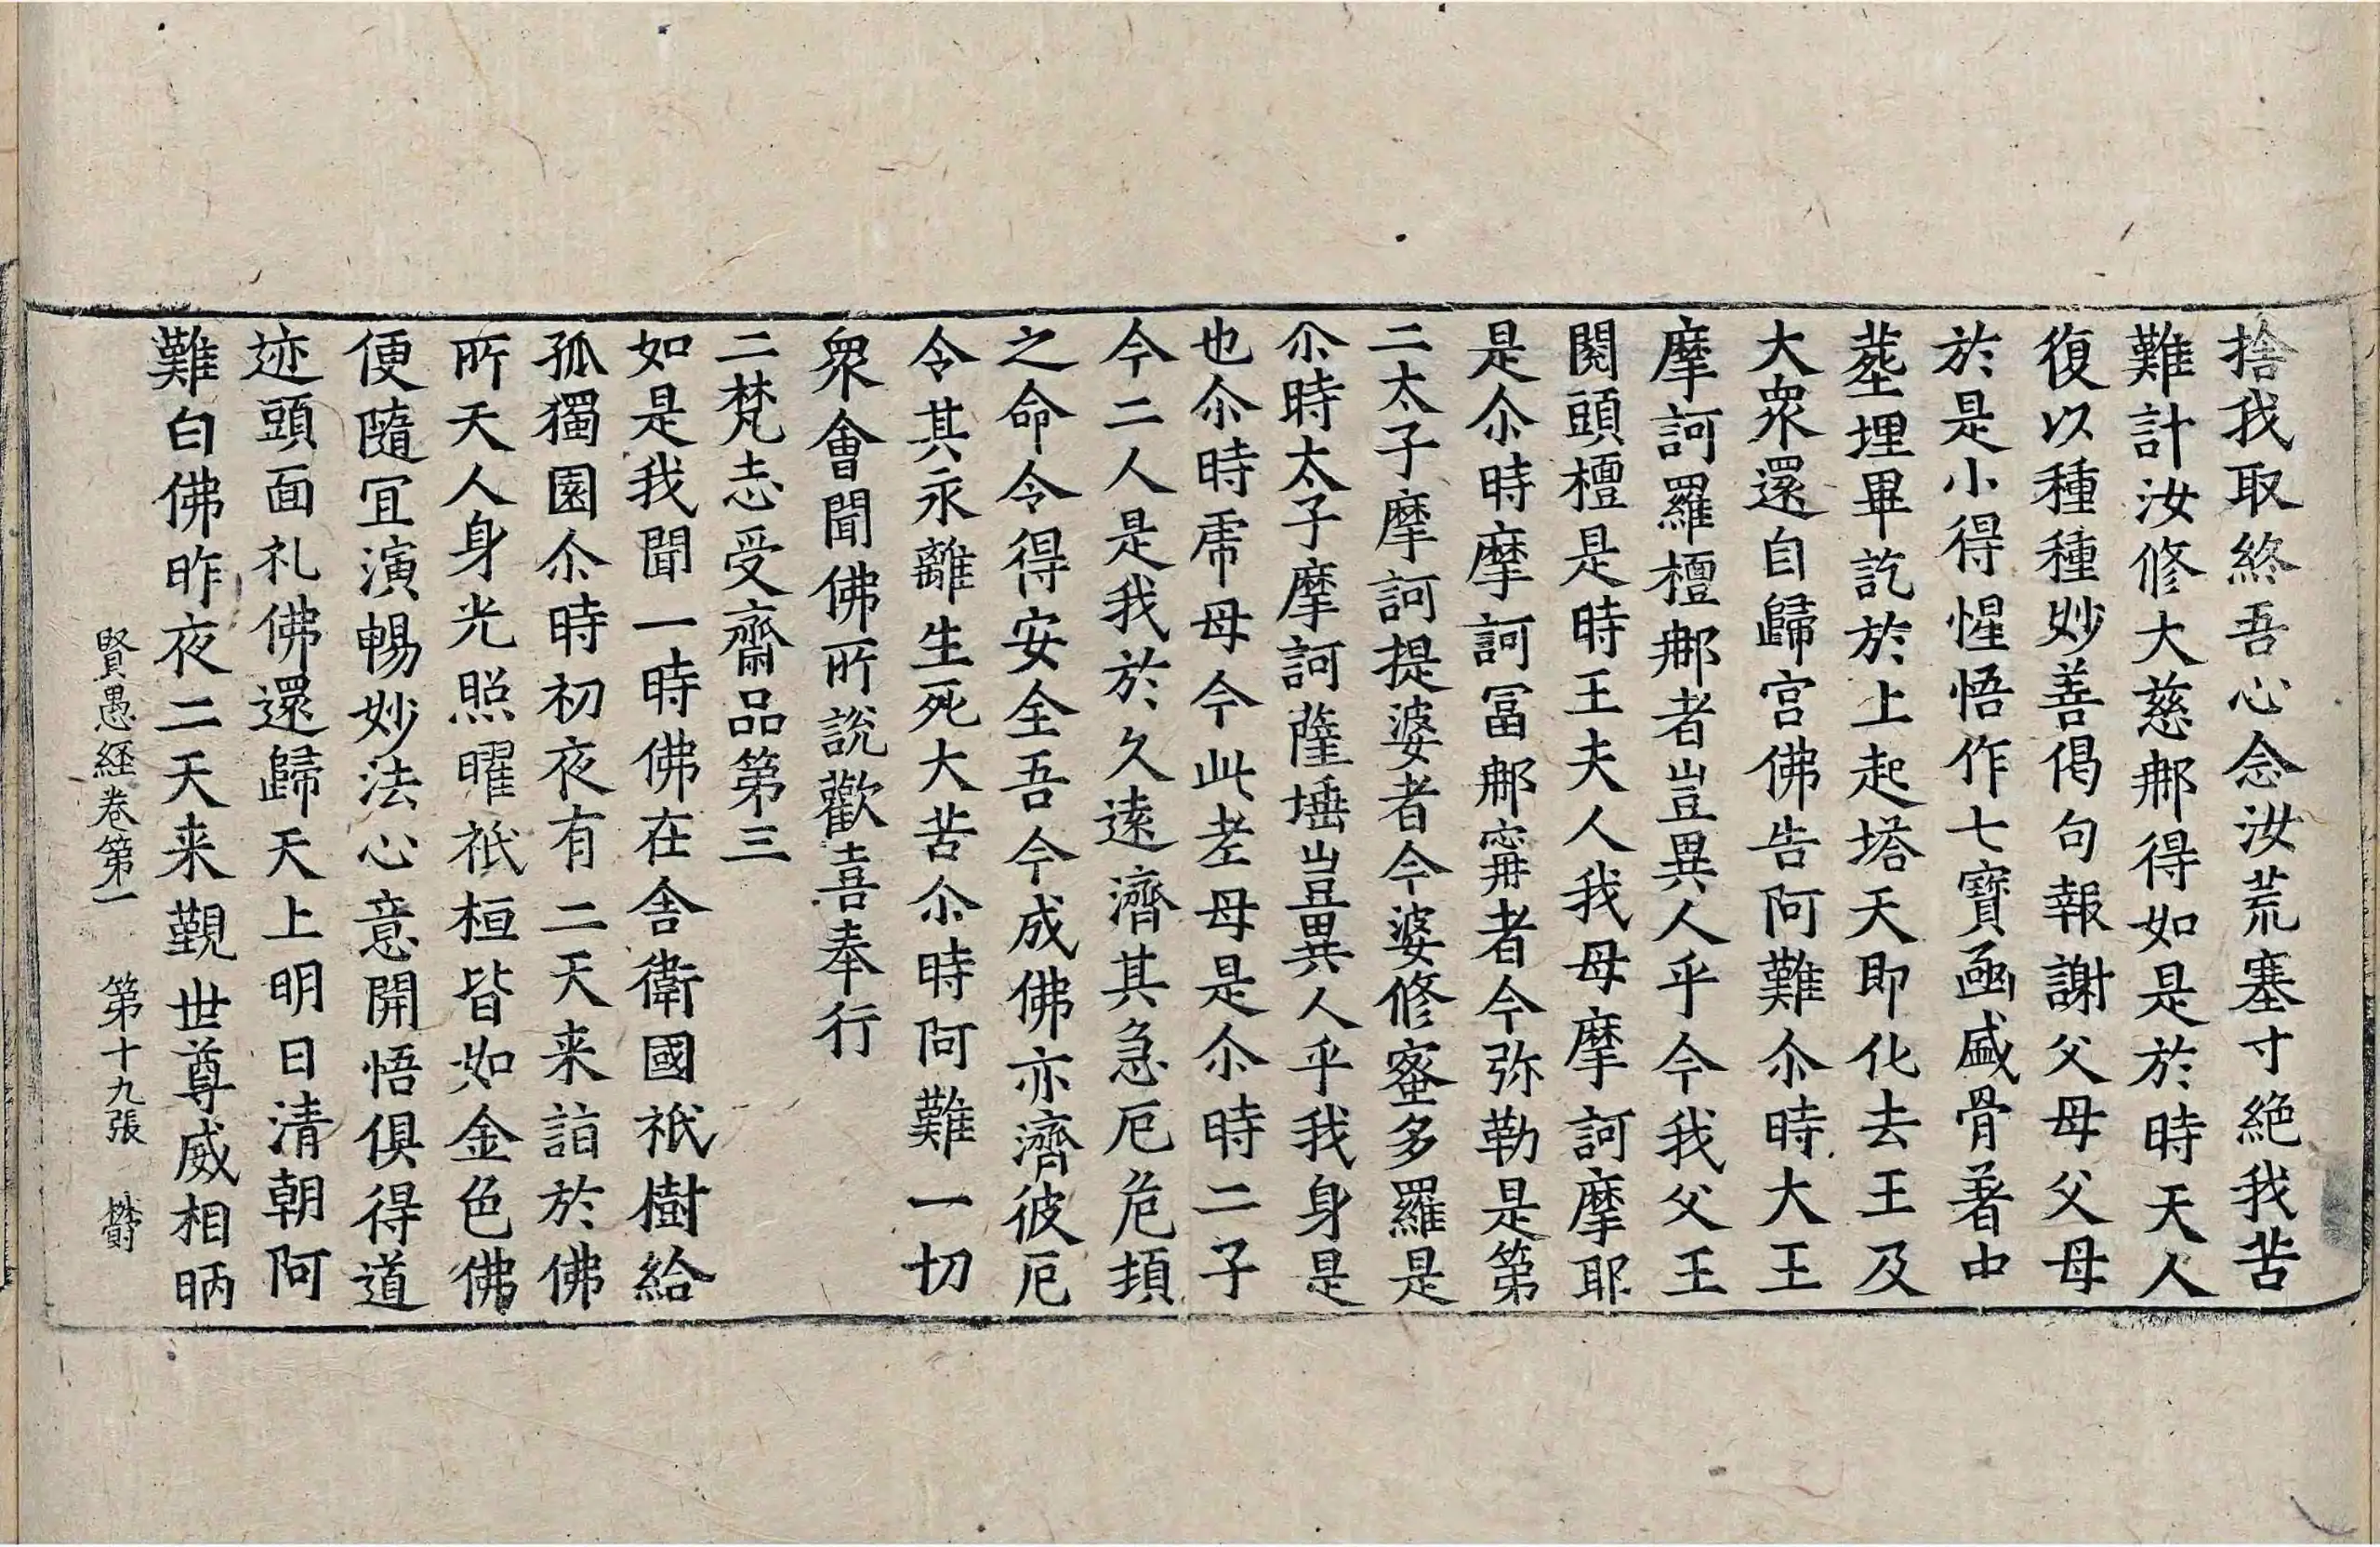 捨我取終吾心念汝荒塞寸絶我苦
難計汝修大慈郍得如是於時天人
復以種種妙善偈句報謝父母父母
於是小得惺悟作七寶凾盛骨著中
葬埋畢訖於上起塔天即化去王及
大衆還自歸宫佛告阿難尒時大王
摩訶羅檀郍者豈異人乎今我父王
閱頭檀是時王夫人我母摩訶摩耶
是尒時摩訶冨郍寗者今弥勒是第
二太子摩訶提婆者今婆修蜜多羅是
尒時太子摩訶薩埵豈異人乎我身是
也尒時虎母今此老母是尒時二子
今二人是我於久遠濟其急厄危頓
之命令得安全吾今成佛亦濟彼厄
令其永離生死大苦尒時阿難一切
衆會聞佛所說歡喜奉行
二梵志受齋品第三
如是我聞一時佛在舎衛國祇樹給
孤獨園尒時初夜有二天来詣於佛
所天人身光照曜祇桓皆如金色佛
便隨冝演暢妙法心意開悟俱得道
迹頭面礼佛還歸天上明日清朝阿
難白佛昨夜二天来覲世尊威相昞
賢愚經卷第一　第十九張　欝